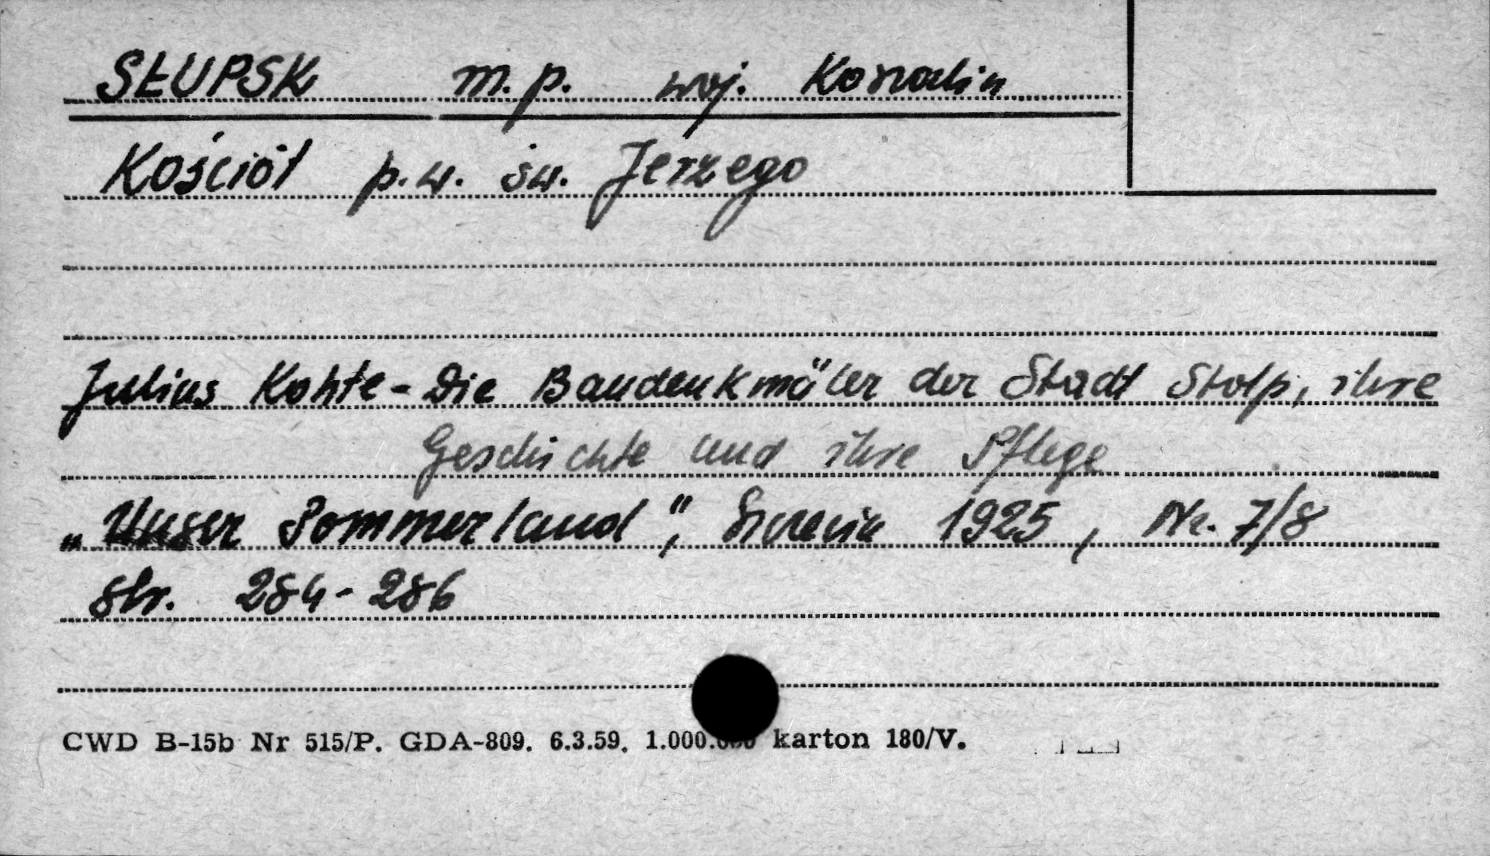 SŁUPSK m.p. woj. Koszalin
Kościół p.w. św. Jerzego
Julius Kohte - Die Baudenkmäler der Stadt Stolp, ihre
Geschichte und ihre Pflege
„Unser Pommerland", Szczecin 1925, Nr. 7/8
str. 284-286
CWD B-15b Nr 515/P. GDA-809. 6.3.59. 1.000.000 karton 180/V.